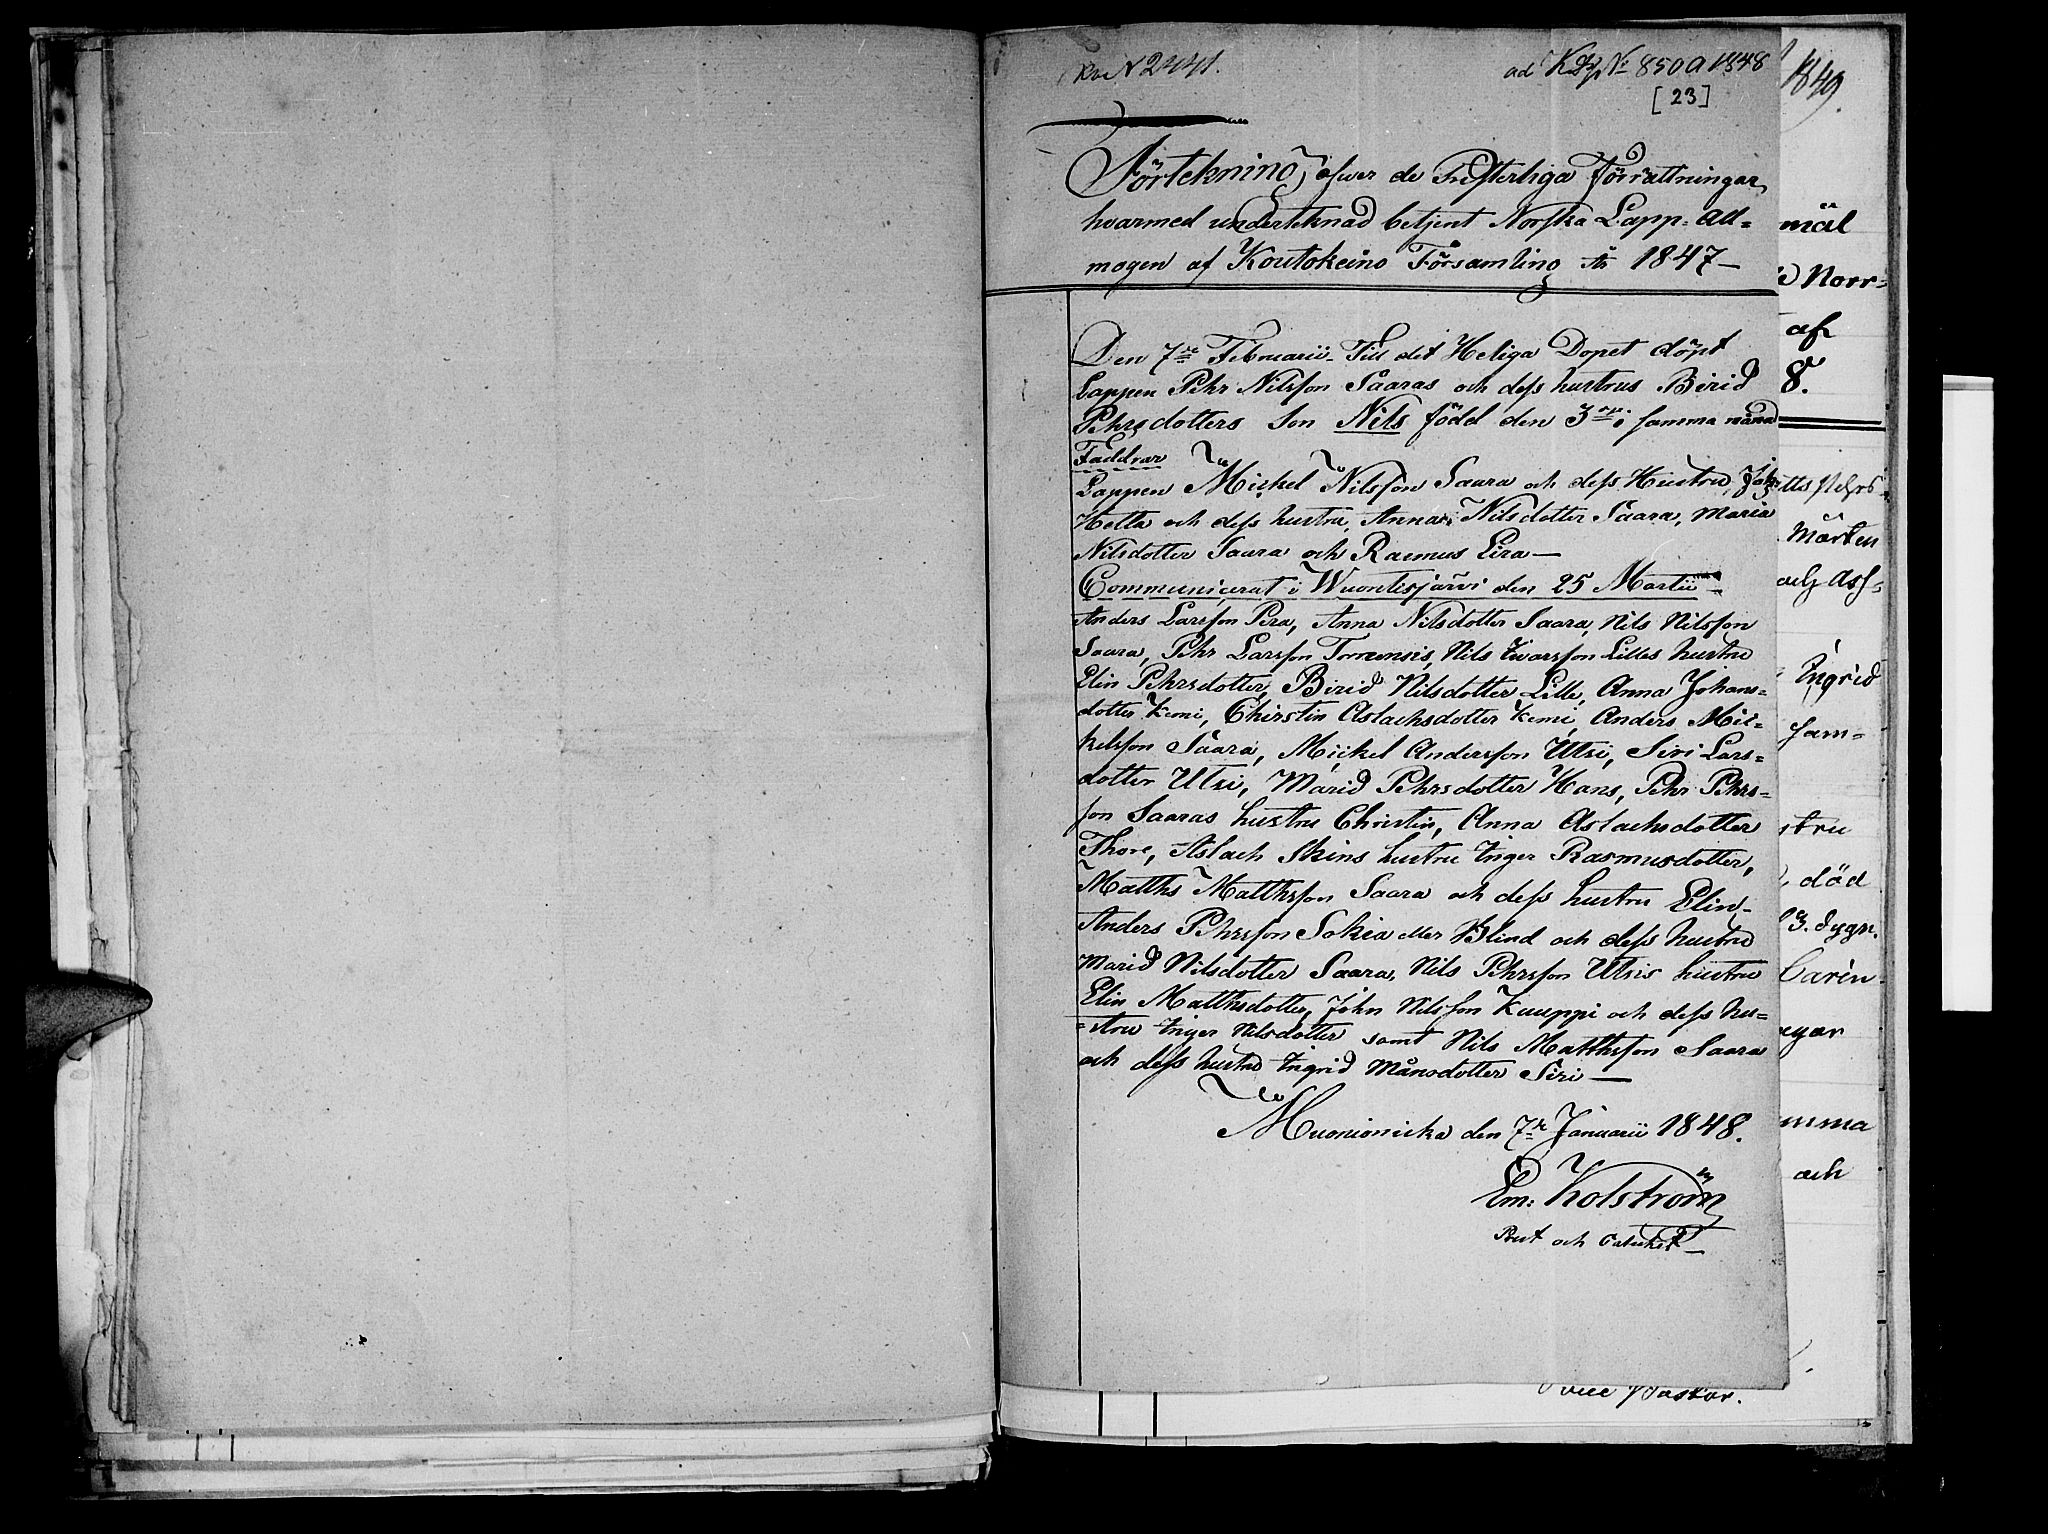 No 2441.
ad No 850 a 1848
[23]
Förtekning, öfwer de Presterliga Förrättningar,
hvarmed undertecknad betjent Norska Lapp-All=
mogen af Koutokeino Församling År 1847—
Den 7de Februarii Till det Heliga Dopet döpt
Lappen Pehr Nilsson Saaras och dess hustrus Birid
Pehrsdotters Son Nils född den 3die i samma månad
Faddrar
Lappen Mickel Nilsson Saara och dess Hustru,
Hetta och dess hustru, Anna Nilsdotter Saara, Maria
Nilsdotter Saara och Rasmus Eira—
Communicerat i Wuontisjärvi den 25 Martii—
Anders Larsson Pira, Anna Nilsdotter Saara, Nils Nilsson
Saara, Pehr Larsson Torneensis, Nils Ivarsson Lilles hustru
Elin Pehrsdotter, Birid Nilsdotter Lille, Anna Johans=
dotter Kemi, Chirstin Aslachsdotter Kemi, Anders Mic=
kelsson Saara, Mickel Andersson Utsi, Siri Lars=
dotter Utsi, Marid Pehrsdotter Hans, Pehr Pehrs=
son Saaras hustru Christin, Anna Aslachsdotter
Thore, Aslach Skins hustru Inger Rasmusdotter,
Matths Matthsson Saara och dess hustru Elin—
Anders Pehrsson Sokia eller Blind och dess hustru
Marid Nilsdotter Saara, Nils Pehrsson Utsis hustru
Elin Matthsdotter, John Nilsson Kuuppi och dess hu=
=stru Inger Nilsdotter samt Nils Matthsson Saara
och dess hustru Ingrid Månsdotter Siri—
Muonioniska den 7de Januarii 1848.
Em: Kolström
Prest och Catechet
1849.
mäl
Norr=
af
8.
Mårten
och Asl=
Ingrid
sam=
stru
död
3. dygn.
Carin
ngar
mma
och
Vice Pastor.